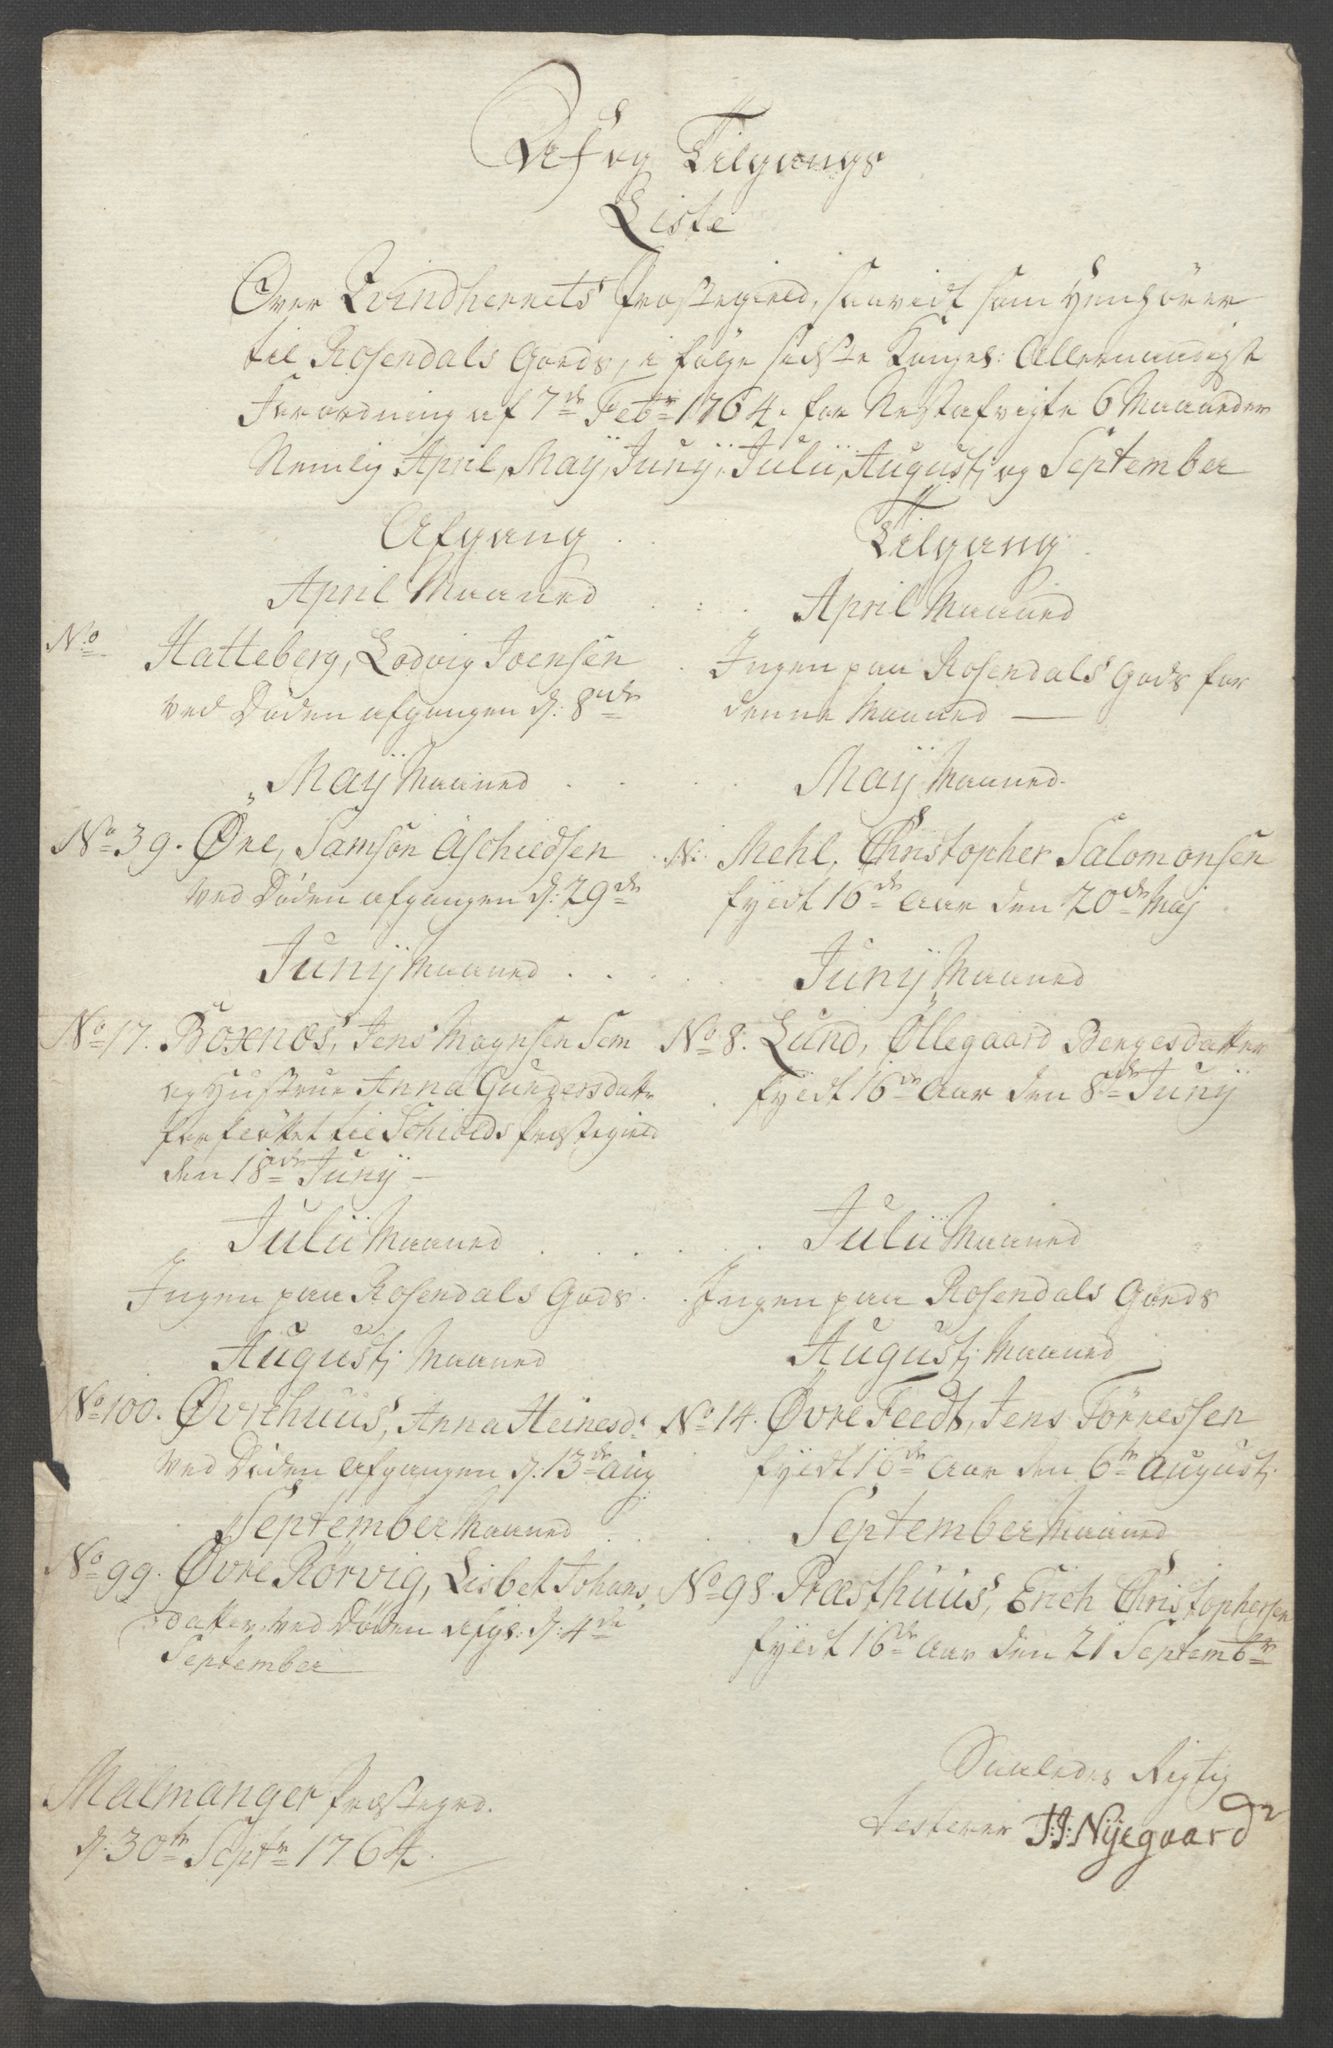 Af og Tilgangs
Liste
Over Qvindherrets Præstegield, saavidt som Henhörer
til Rosendals Goeds, i følge sidste Kongel: Allernaadigst
Forordning af 7de Febr 1764. for Nestafvigte 6 Maaneder
Nemlig April, Maÿ, Junÿ, Julii, Augustj og September
Afgang
April Maaned
No Hatteberg, Lodvig Joensen
ved Døden afgangen d: 8de
Maÿ Maaned
No 39. Øre, Samson Aschiedsen
ved Døden afgangen d: 29de
Junÿ Maaned
No 17. Boxnæs, Jens Mognsen Sem
og Hustrue Anna Gundersdatr
forflöttet til Schiolds Præstegield
den 18de Junÿ
Julii Maaned
Ingen paa Rosendals Gods
Augustj Maaned
No 100. Øvrehuus, Anna Heinesdr
ved Døden afgangen d. 13de Aug
September Maaned
No 99. Øvre Rörvig, Lisbet Johans
datter, ved Døden afgs: d: 4de
September
Tilgang
April Maaned
Ingen paa Rosendals Gods for
denne Maaned
Maÿ Maaned
N: Mehl, Christopher Salomonsen
fyldt 16de Aar den 20de Maj
Junÿ Maaned
No 8. Lund, Øllegaard Bergesdatter
fyldt 16de Aar den 8de Junÿ
Julii Maaned
Ingen paa Rosendals Goeds
Augustj Maaned
No 14. Øvre Feedt, Jens Törressen
fyldt 16de Aar den 6te Augustj
September Maaned
No 98. Præsthuus, Erich Christophersen
fyldt 16de Aar den 21 Septembr
Malmanger Præstegrd.
d: 30te Septr 1764.
Saaledes Rigtig
testerer J:J: Nÿegaard